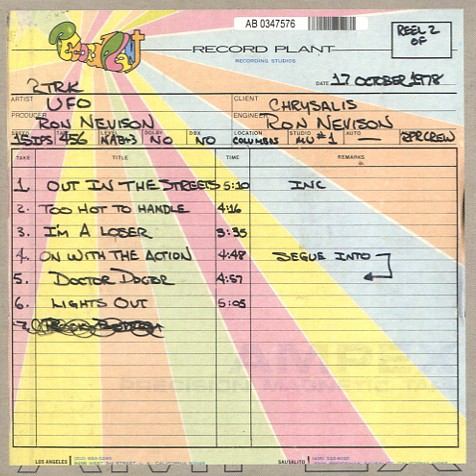 AB 0347576
REEL 2
OF
Record Plant
RECORD PLANT
RECORDING STUDIOS
DATE 17 OCTOBER 1978
2TRK
ARTIST UFO CLIENT CHRYSALIS
PRODUCER RON NEVISON ENGINEER RON NEVISON
SPEED TAPE LEVEL DOLBY DBX LOCATION STUDIO AUTO
15IPS 456 NAB+3 NO NO COLUMBUS MU #1 — RPR CREW
TAKE TITLE TIME REMARKS
1. OUT IN THE STREETS 5:10 INC
2. TOO HOT TO HANDLE 4:16
3. I'M A LOSER 3:35
4. ON WITH THE ACTION 4:48 SEGUE INTO
5. DOCTOR DOCTOR 4:57
6. LIGHTS OUT 5:05
7.
LOS ANGELES
SAUSALITO